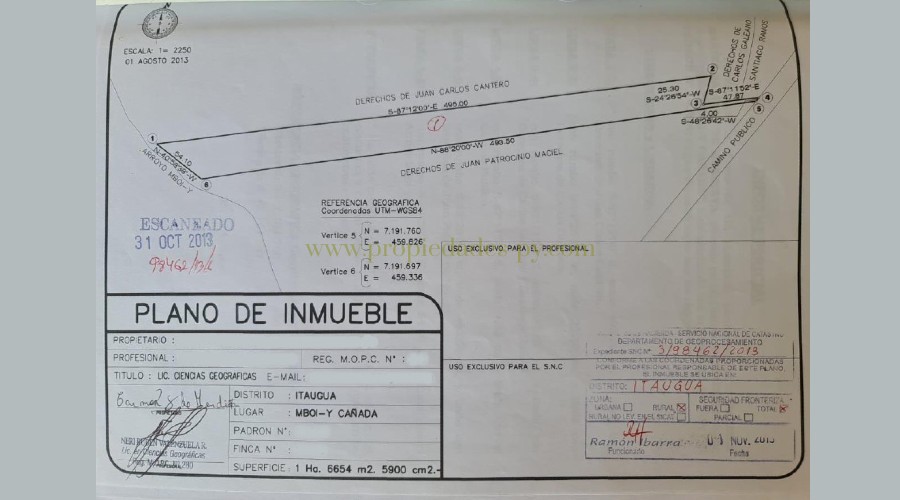 ESCALA: 1= 2250
01 AGOSTO 2013
DERECHOS DE JUAN CARLOS CANTERO
S-87°12'00"-E 495.00
1
2
3
4
5
6
1
54.10
ARROYO MBOI-Y
25.30
S-24°26'54"-W
S-67°11'52"-E
47.87
4.00
S-48°26'42"-W
N-88°20'00"-W 493.50
DERECHOS DE JUAN PATROCINIO MACIEL
DERECHOS DE
CARLOS GALEANO
SANTIAGO RAMOS
CAMINO PUBLICO
REFERENCIA GEOGRAFICA
Coordenadas UTM-WGS84
Vertice 5 N = 7,191.760
E = 459.826
Vertice 6 N = 7,191.697
E = 459.336
ESCANEADO
31 OCT 2013
98462/13/2
www.propiedades-py.com
USO EXCLUSIVO PARA EL PROFESIONAL
USO EXCLUSIVO PARA EL S.N.C
PLANO DE INMUEBLE
PROPIETARIO :
PROFESIONAL : REG. M.O.P.C. N° :
TITULO : LIC. CIENCIAS GEOGRAFICAS E-MAIL:
DISTRITO : ITAUGUA
LUGAR : MBOI-Y CAÑADA
PADRON N° :
FINCA N° :
SUPERFICIE: 1 Ha. 6654 m2. 5900 cm2.-
Lic. en Ciencias Geográficas
SERVICIO NACIONAL DE CATASTRO
DEPARTAMENTO DE GEOPROCESAMIENTO
Expediente SNC N° 3/98462/2013
CONFORME A LAS COORDENADAS PROPORCIONADAS
POR EL PROFESIONAL RESPONSABLE DE ESTE PLANO,
EL INMUEBLE SE UBICA EN:
DISTRITO: ITAUGUA
ZONA: SEGURIDAD FRONTERIZA
URBANA RURAL FUERA TOTAL
PARCIAL
Ramón Ibarra NOV. 2013
Funcionario Fecha